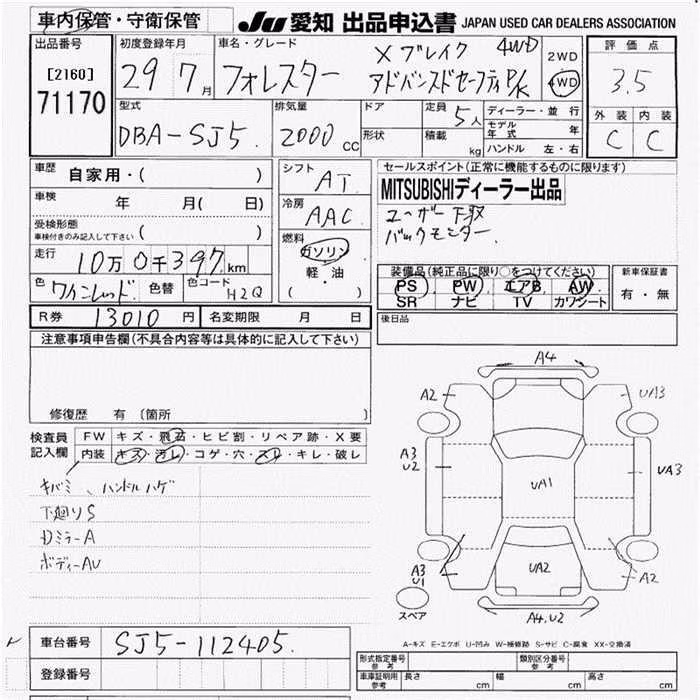 車内保管・守衛保管 JU 愛知 出品申込書 JAPAN USED CAR DEALERS ASSOCIATION
出品番号 初度登録年月 車名・グレード 評価点
[2160] 71170
29 7月 フォレスター Xブレイク 4WD
アドバンスドセーフティP/K
2WD
4WD
3.5
外装 内装
C C
型式 排気量 ドア 定員 5人 ディーラー・並行
DBA-SJ5. 2000cc 形状 積載 kg
モデル年式 年
ハンドル 左・右
車歴 自家用・( )
車検 年 月( 日)
受検形態
車検付きのみ記入して下さい ( )
走行 10万0千397km
色 ワインレッド. 色替 色コード H2Q
シフト AT
冷房 AAC
燃料 ガソリン
軽・油
( )
セールスポイント(正常に機能するものに限ります)
MITSUBISHIディーラー出品
ユーザー下取
バックモニター.
装備品(純正品に限り○をつけてください) 新車保証書
PS PW エアB AW 有・無
SR ナビ TV カワシート
R券 13010円 名変期限 月 日
後日品
注意事項申告欄(不具合内容等は具体的に記入して下さい)
修復歴 有 〔箇所 〕
検査員記入欄
FW キズ・飛石・ヒビ割・リペア跡・X要
内装 キズ・汚レ・コゲ・穴・スレ・キレ・破レ
キバミ、ハンドルハゲ
下廻りS
Dミラー A
ボディーAU
A4
A2 UA3
A3 U2 UA1 UA3
A3 U1 UA2 A2
スペア A4.U2
A-キズ E-エクボ U-凹み W-補修跡 S-サビ C-腐食 XX-交換済
車台番号 SJ5-112405.
登録番号
形式指定番号 参考 類別区分番号 参考
車庫証明用 参考 長さ cm 幅 cm 高さ cm